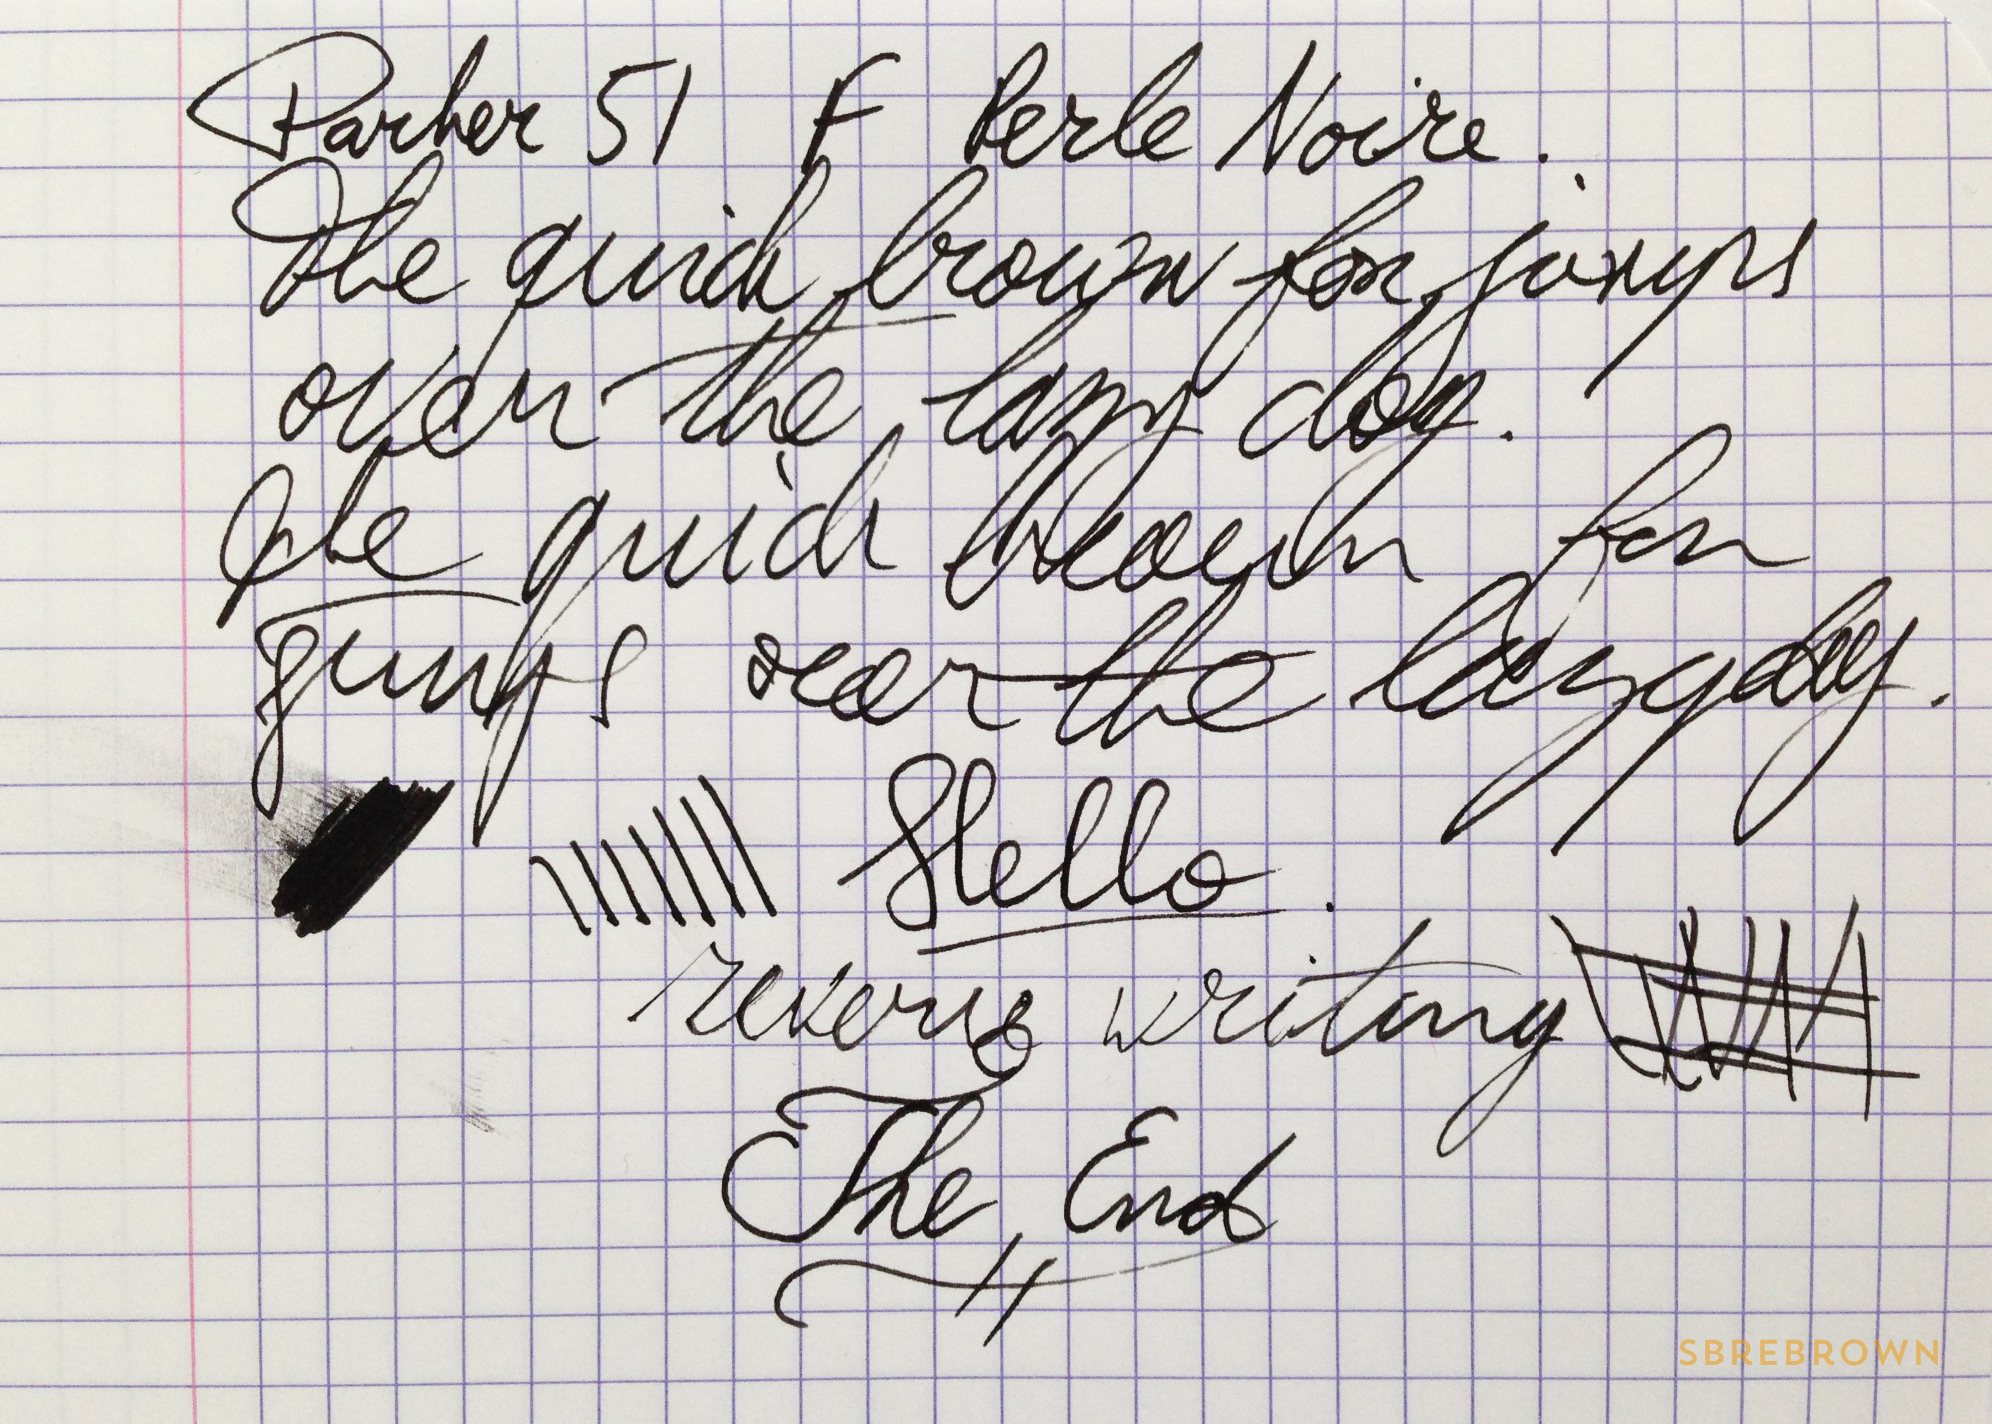 Parker 51 F Perle Noire.
The quick brown fox jumps
over the lazy dog.
The quick brown fox
jumps over the lazy dog.
Hello.
reverse writing
The End
SBREBROWN